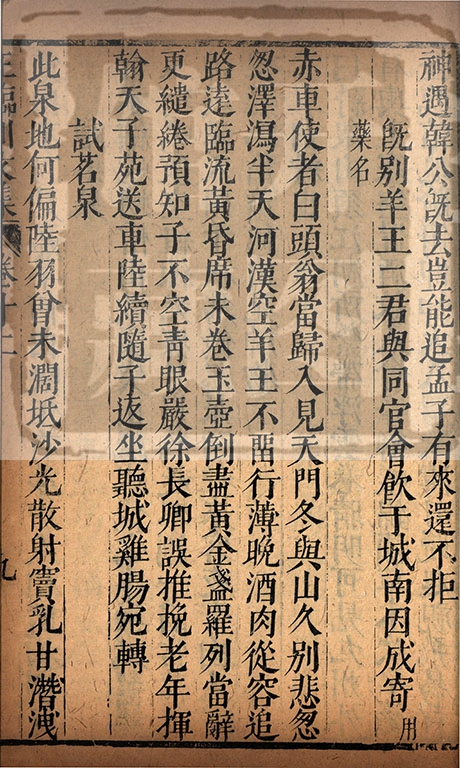 神遇韓公旣去豈能追孟子有來還不拒
旣別羊王二君與同官會飲于城南因成寄用
藥名
赤車使者白頭翁當歸入見天門冬與山久別悲怱
怱澤瀉半天河漢空羊王不畱行薄晚酒肉從容追
路達臨流黃昏席未卷玉壺倒盡黃金盞羅列當辭
更繾綣預知子不空青眼嚴徐長卿誤推挽老年揮
翰天子苑送車陸續隨子返坐聽城雞腸宛轉
試茗泉
此泉地何偏陸羽曾未濶坻沙光散射竇乳甘潛洩